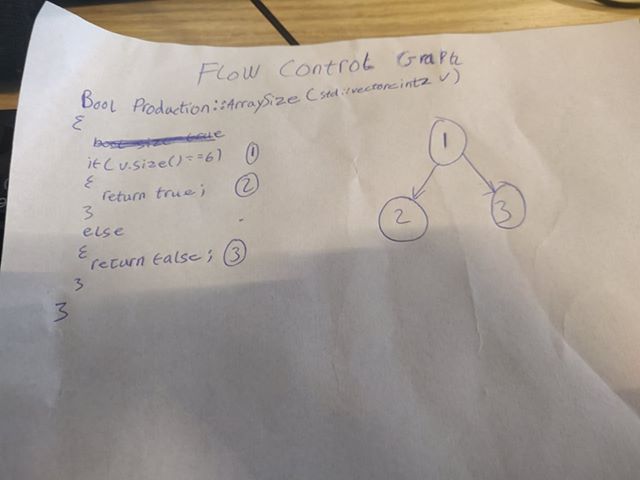 FLOW CONTROL GRAPH
Bool Production::ArraySize (std::vector<int> v)
{
if(v.size() == 6) 1
{
return true; 2
}
else
{
return false; 3
}
}
1
2 3